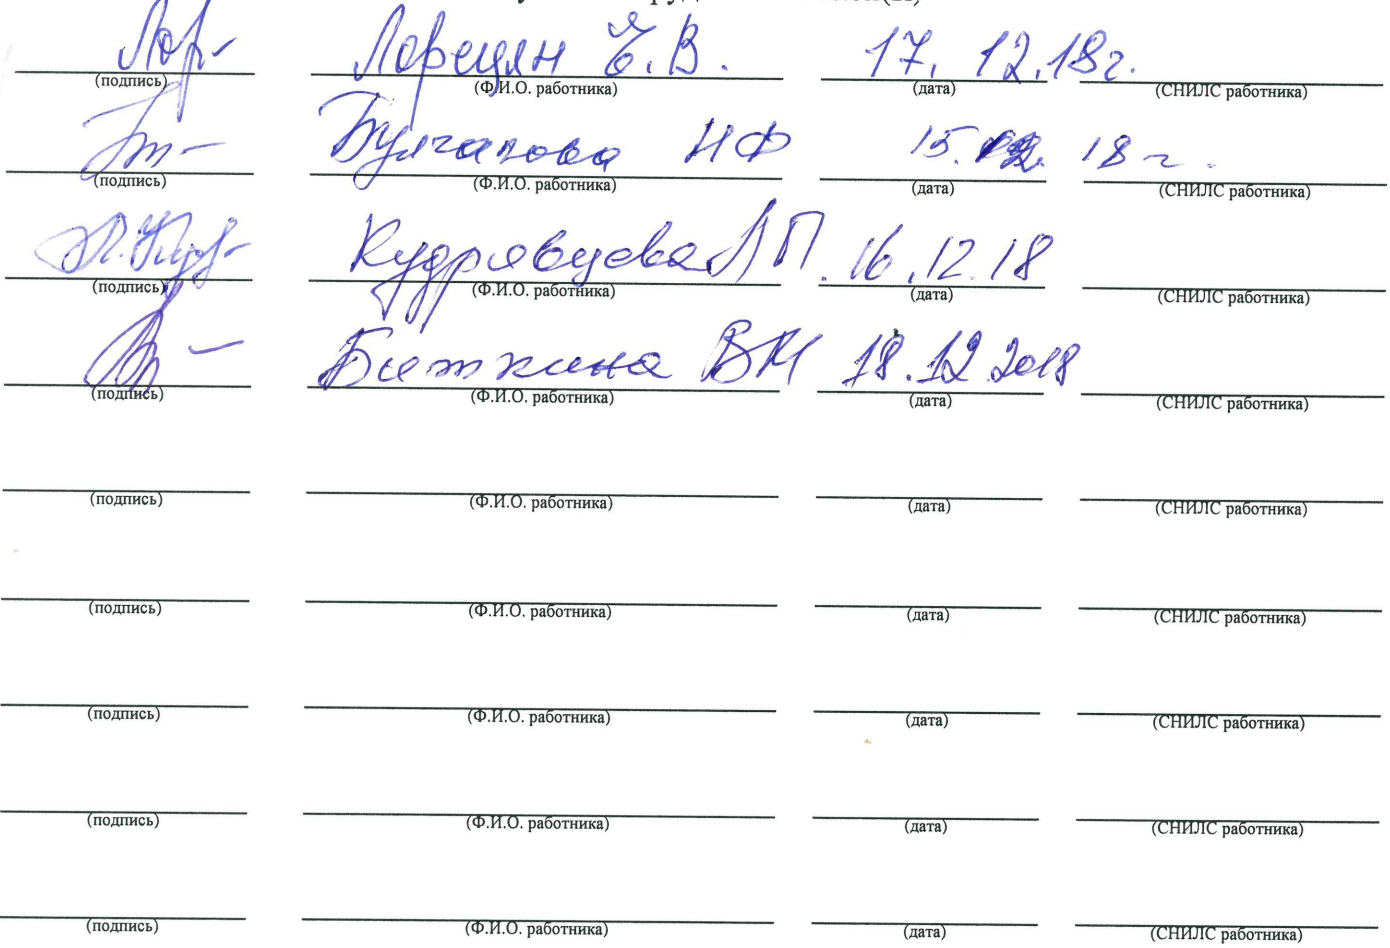 Лор- Лорецян Е.В. 17. 12.18г.
(подпись) (Ф.И.О. работника) (дата) (СНИЛС работника)
НФ 15. 12. 18 г.
(подпись) (Ф.И.О. работника) (дата) (СНИЛС работника)
Кудрявцева Л П. 16.12.18
(подпись) (Ф.И.О. работника) (дата) (СНИЛС работника)
ВМ 18.12.2018
(подпись) (Ф.И.О. работника) (дата) (СНИЛС работника)
(подпись) (Ф.И.О. работника) (дата) (СНИЛС работника)
(подпись) (Ф.И.О. работника) (дата) (СНИЛС работника)
(подпись) (Ф.И.О. работника) (дата) (СНИЛС работника)
(подпись) (Ф.И.О. работника) (дата) (СНИЛС работника)
(подпись) (Ф.И.О. работника) (дата) (СНИЛС работника)